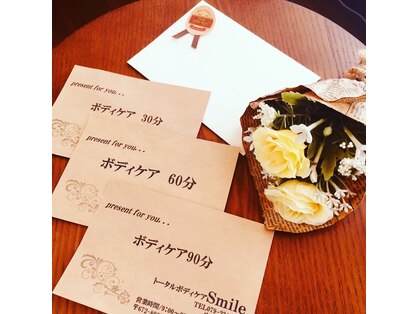 present for you...
ボディケア 30分
present for you...
ボディケア 60分
present for you...
ボディケア90分
トータルボディケアSmile
TEL079-
営業時間/9:00～
〒672-